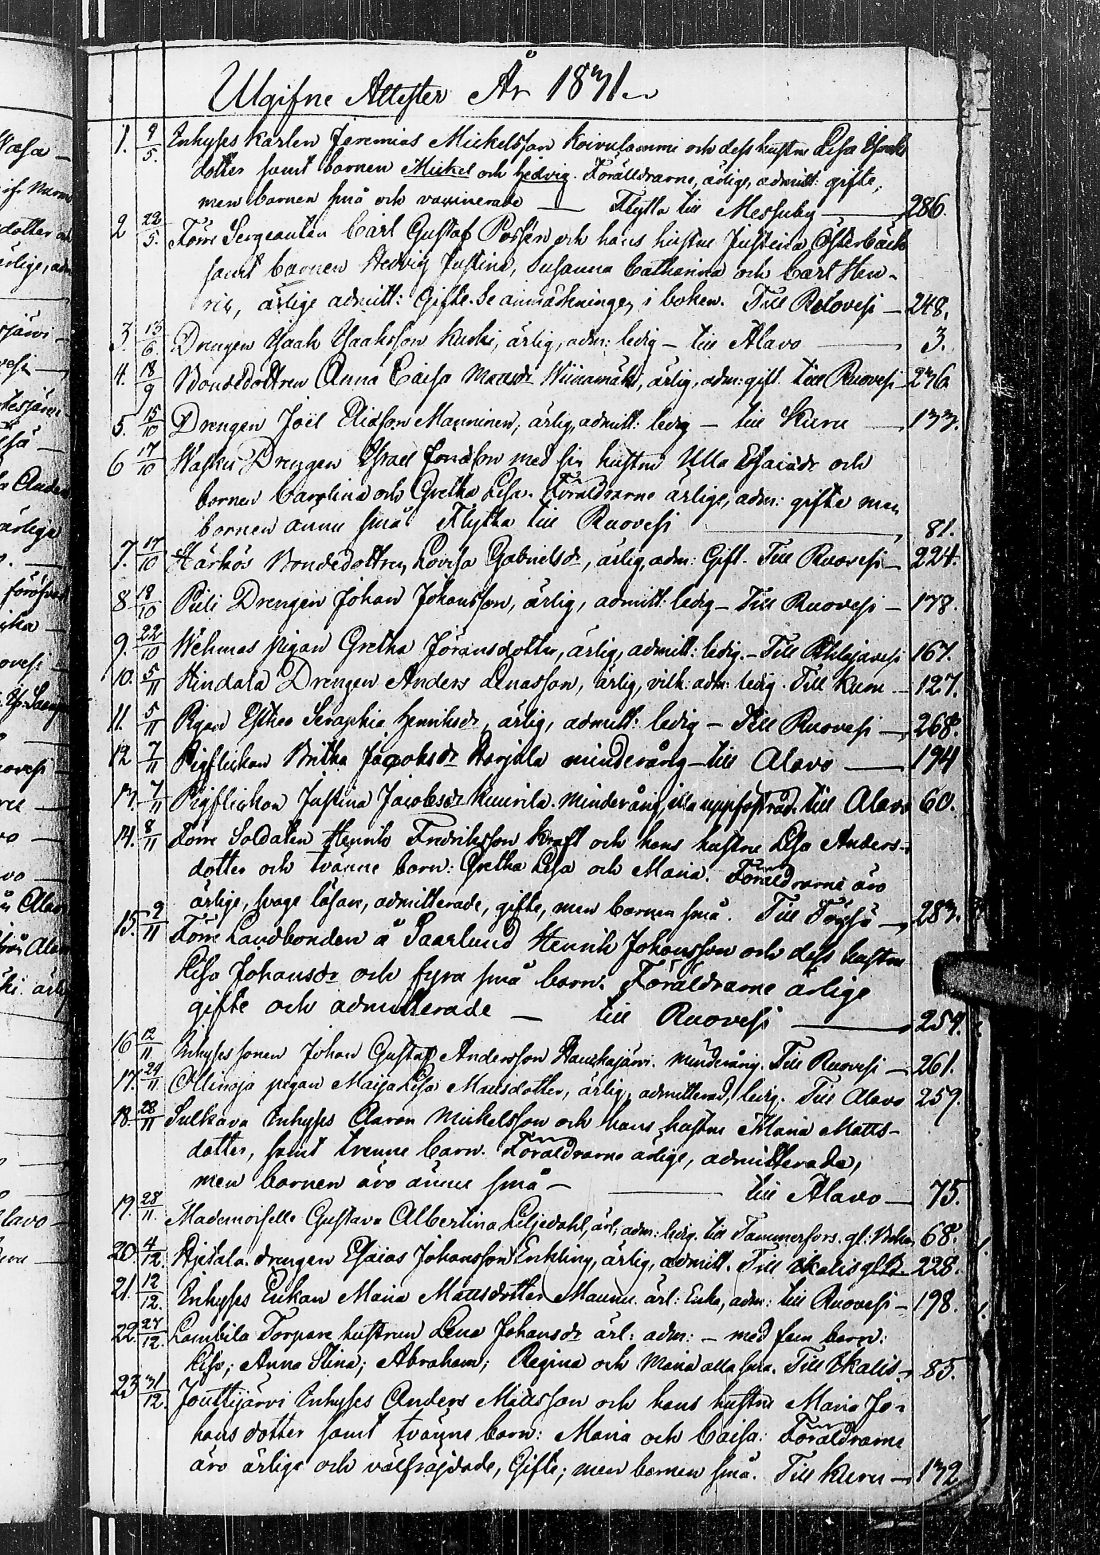 Utgifne Attester År 1831.
1. 9/5. Inhyses karlen Jeremias Mickelsson Koivulammi och dess hustru Lisa Isaks
dotter samt barnen Mickel och Hedvig. Föräldrarne, ärlige, admitt: gifte,
men barnen små och vaxinerade — Flytta till Messuby — 286.
2 22/5. Förre Sergeanten Carl Gustaf Possén och hans hustru Justina Österbäck
samt barnen Hedvig Justina, Susanna Catharina och Carl Hen-
ric, ärlige admitt: Gifte. Se anmärkningen i boken. Till — 248.
3. 13/6 Drengen Isaak Isaaksson Kurki, ärlig, adm: ledig — till Alavo — 3.
4. 18/9 Bondedottren Anna Caisa Mattsdr Wiinamäki, ärlig, adm: gift. till Ruovesi — 236
5. 15/10 Drengen Joël Eliasson Manninen, ärlig, admitt: ledig — till Kuru — 133.
6 17/10 Wasku Drengen Israel Jonasson med sin hustru Ulla Esaiadr och
barnen Carolina och Gretha Lisa. Föräldrarne ärlige, adm: gifte men
barnen ännu små Flytta till Ruovesi — 81.
7. 17/10 Härkös Bondedottren Lovisa Gabrielsdr, ärlig, adm: Gift. Till Ruovesi — 224.
8 18/10 Puli Drengen Johan Johansson, ärlig, admitt: ledig — Till Ruovesi — 178.
9. 22/10 Wehmas pigan Gretha Göransdotter, ärlig, admitt: ledig. — Till Pihlajavesi 167.
10. 5/11 Hindala Drengen Anders Jonasson, ärlig, vilk: adm: ledig. Till Kuru — 127.
11. 5/11 Pigan Esther Seraphia Henriksdr, ärlig, admitt: ledig — Till Ruovesi — 268.
12 7/11 Pigflickan Britha Jacobsdr Harjula minderårig — till Alavo — 194
13. 7/11 Pigflickan Justina Jacobsdr Kuurila. Minderårig, illa uppfostrad. till Alavo 60.
14. 8/11 Förre Soldaten Henrik Fredriksson Kraft och hans hustru Lisa Anders-
dotter och tvänne barn: Gretha Lisa och Maria. Föräldrarne äro
ärlige, svage läsare, admitterade, gifte, men barnen små. Till — 283.
15. 9/11 Förre Landbonden å Saarlund Henrik Johansson och dess hustru
Lisa Johansdr och fyra små barn. Föräldrarne ärlige
gifte och admitterade — till Ruovesi — 254.
16 12/11 Inhyses sonen Johan Gustaf Andersson Haukajärvi. minderårig. Till Ruovesi — 261.
17. 24/11 Ollinoja pigan Maija Lisa Mattsdotter, ärlig, admitterad, ledig. Till Alavo 259.
18. 28/11 Sulkava Inhyses Aaron Mickelsson och hans hustru Maria Matts-
dotter, samt trenne barn. Föräldrarne ärlige, admitterade,
men barnen äro ännu små — till Alavo — 75.
19. 28/11 Mademoiselle Gustava Albertina Liljedahl, ärl, adm: ledig. till Tammerfors. gl: 68.
20 4/12. drengen Esaias Johansson Enkling, ärlig, admitt. Till Ikalis 228.
21. 12/12. Inhyses Enkan Maria Mattsdotter Maunu ärl: Enka, adm: till Ruovesi — 198.
22. 27/12. Lambila Torpare hustrun Lena Johansdr ärl: adm: — med fem barn:
Lisa; Anna Stina; Abraham; Regina och Maria alla små. Till Ikalis — 85.
23 31/12. Jouttijärvi Inhyses Anders Mattsson och hans hustru Maria Jo-
hansdotter samt tvänne barn: Maria och Caisa: Föräldrarne
äro ärlige och välfräjdade, Gifte; men barnen små. Till Kuru — 132